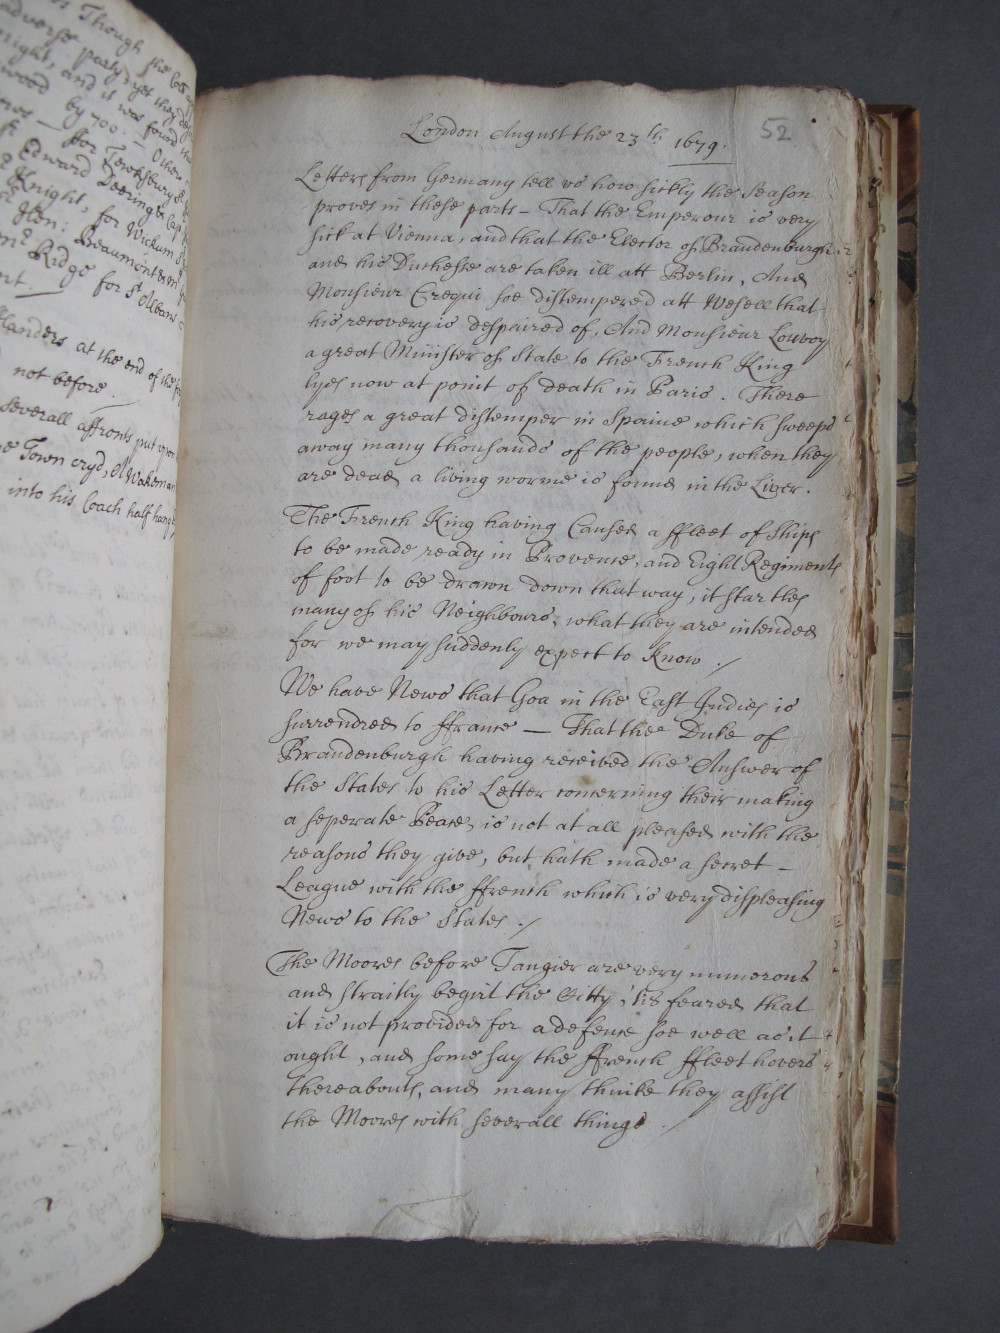 s Though the
adverse party, yet they
might, and it was found
wood by 700 – Other
nes – ffor Tewksbury
Edward Deering &
Knight, for Wickam
Hen: Beaumont &
Ridge for St Albans
nt. /
fflanders at the end of the
not before.
severall affronts put upon
e Town cryd, A Wakeman
into his Coach half hang
52
London August the 23th 1679.
Letters from Germany tell us how sickly the Season
proves in these parts – That the Emperour is very
sick at Vienna, and that the Elector of Brandenburgh
and his Dutchesse are taken ill att Berlin, And
Monsieur Crequi soe distempered att Wesell that
his recovery is despaired of, And Monsieur Louvoy
a great Minister of State to the French King
lyes now at point of death in Paris. There
rages a great distemper in Spaine which sweeps
away many thousands of the people, when they
are dead a living worme is found in the Liver.
The French King having Caused a ffleet of Ships
to be made ready in Provence, and Eight Regiments
of foot to be drawn down that way, it startles
many of his Neighbours, what they are intended
for we may suddenly expect to know. /
We have News that Goa in the East Indies is
surrendred to ffrance — That the Duke of
Brandenburgh having received the Answer of
the States to his Letter concerning their making
a seperate Peace, is not at all pleased with the
reasons they give, but hath made a secret –
League with the ffrench which is very displeasing
News to the States. /
The Moores before Tangier are very numerous
and straitly begirt the Citty, 'tis feared that
it is not provided for a defense soe well as it
ought, and some say the ffrench ffleet hovers
thereabouts, and many thinke they assist
the Moores with severall things. /